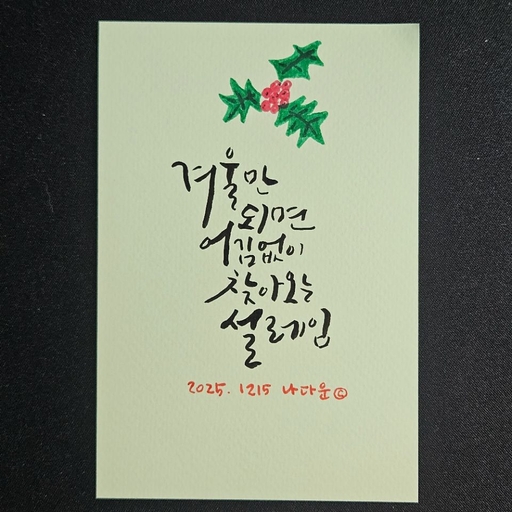 겨울만
되면
어김없이
찾아오는
설레임
2025. 1215 나다운 ©